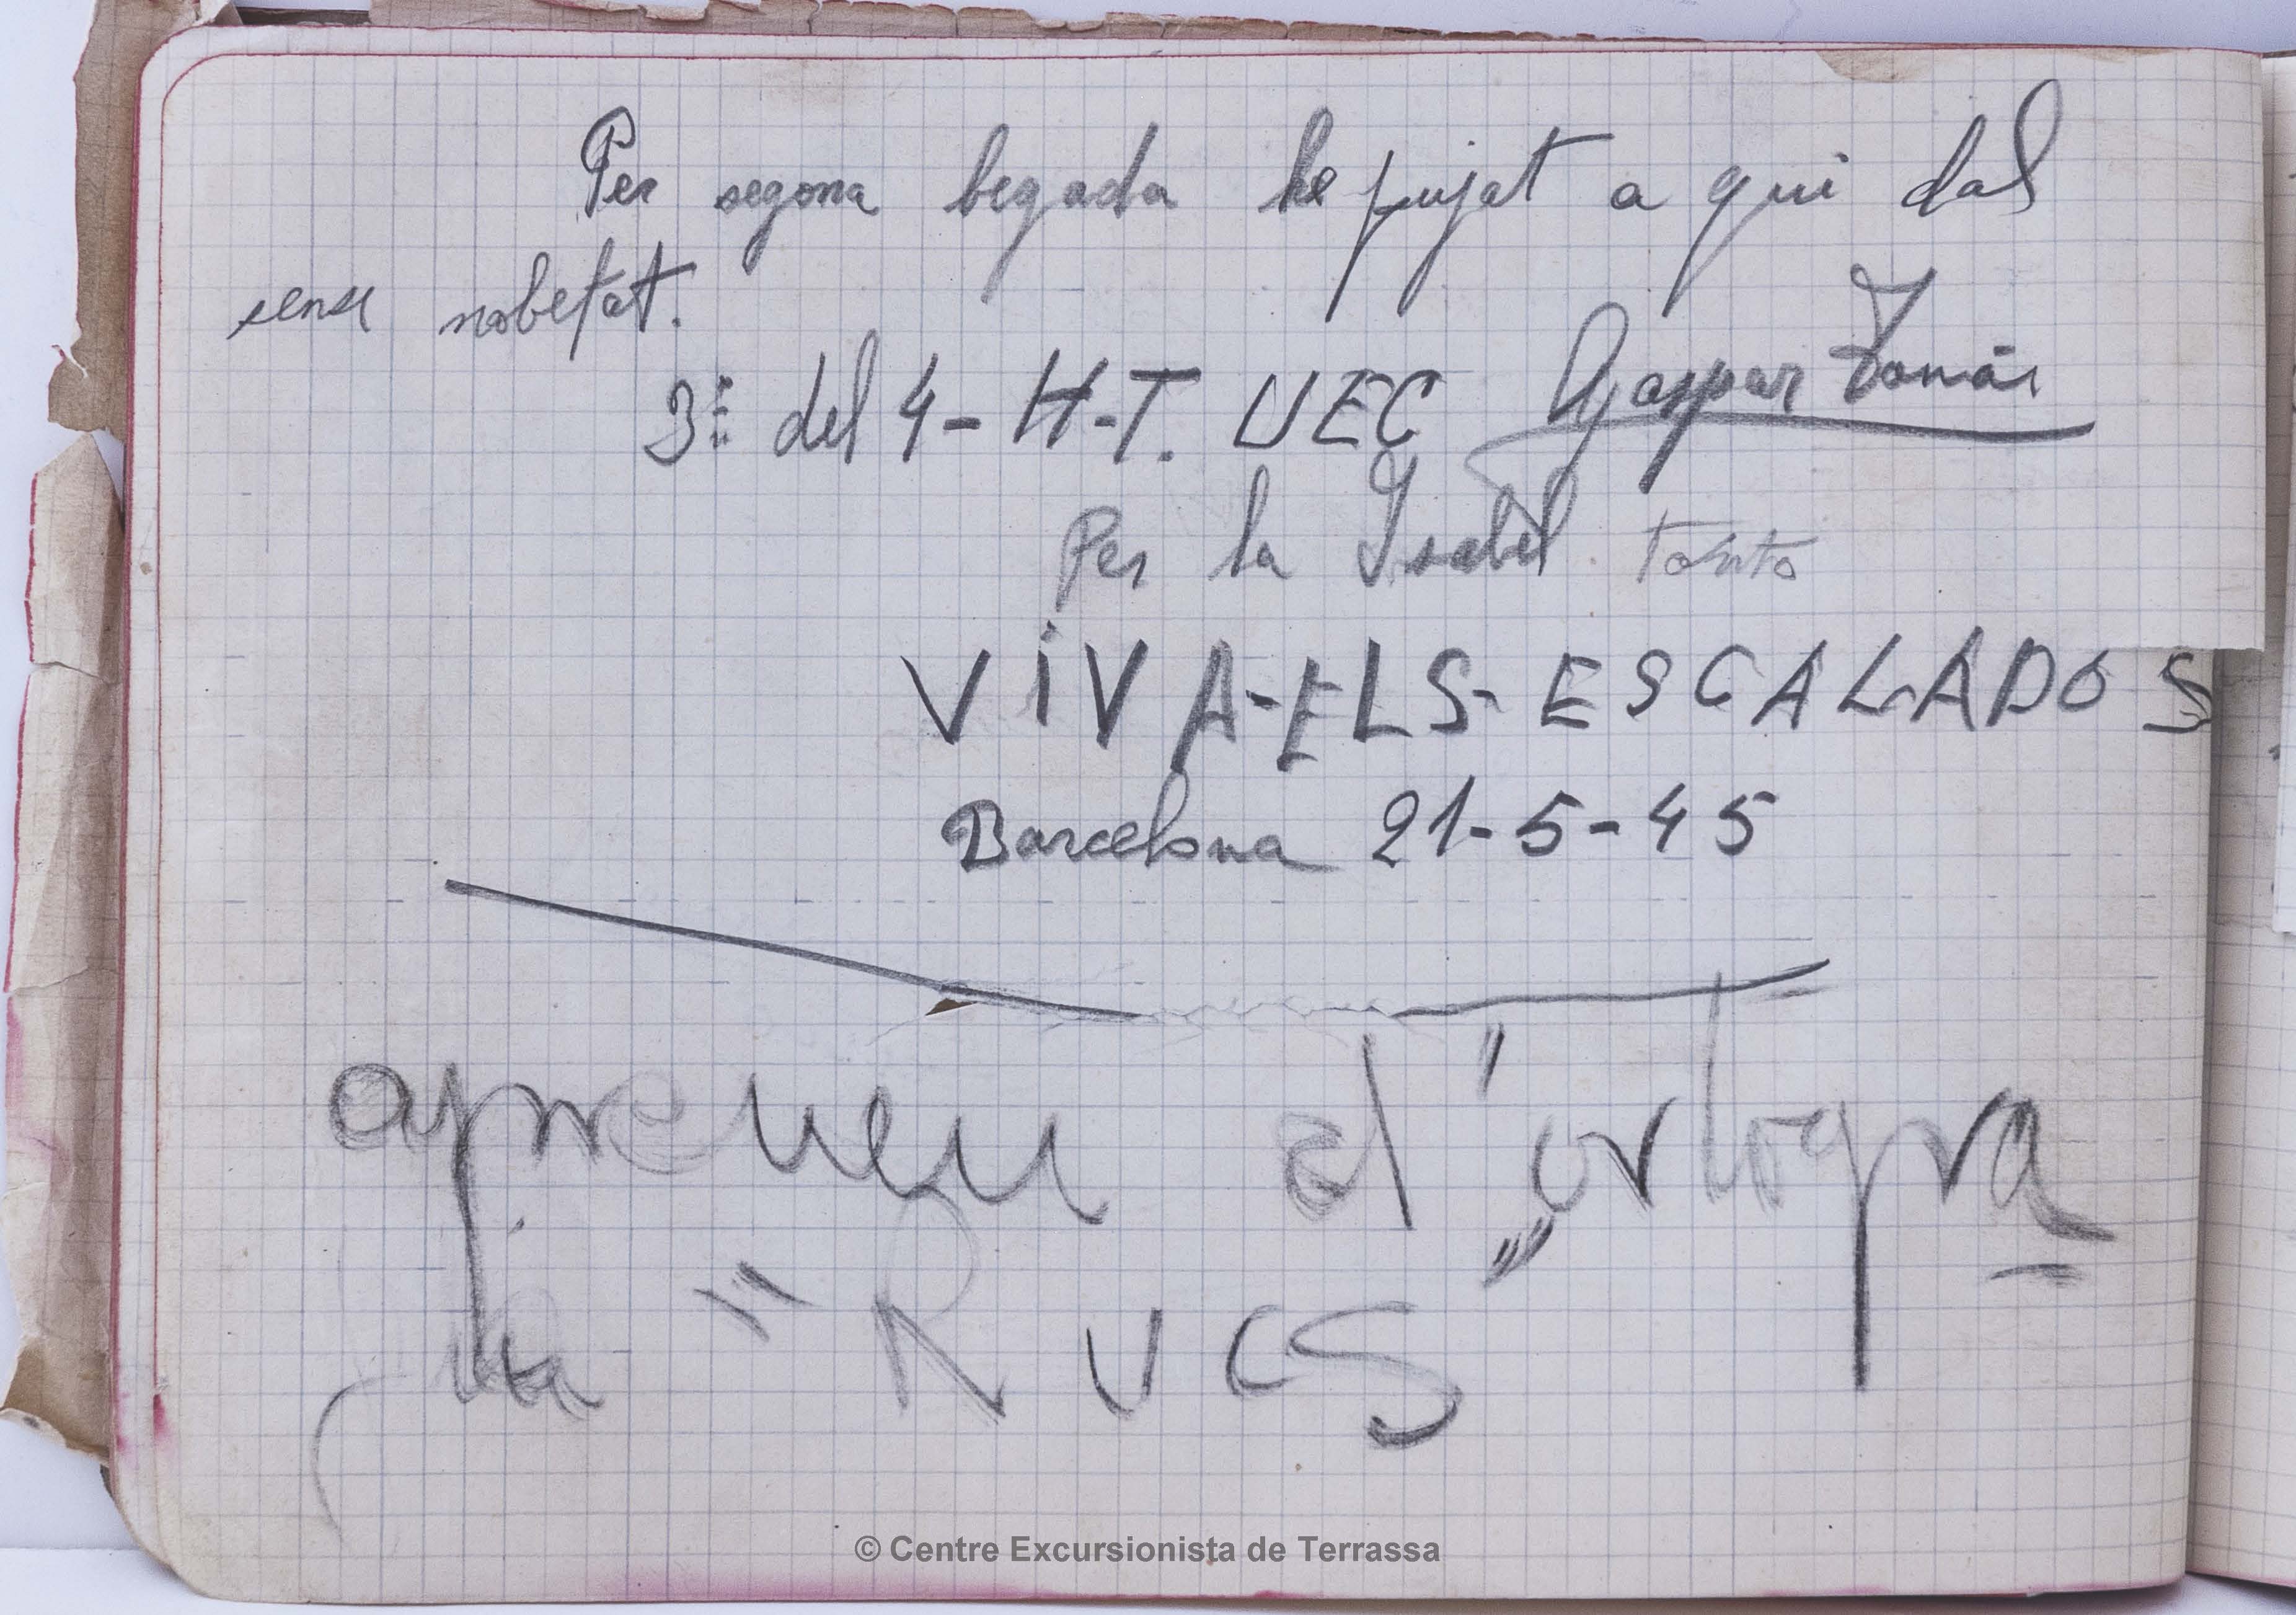 Per segona begada he pujat a qui dal
sense nobetat.
3º del 4-H-T. UEC Gaspar Tomás
Per la Isabel tonto
VIVA-ELS-ESCALADOS
Barcelona 21-5-45
apreneu d'ortogra
fia "RUCS"
© Centre Excursionista de Terrassa